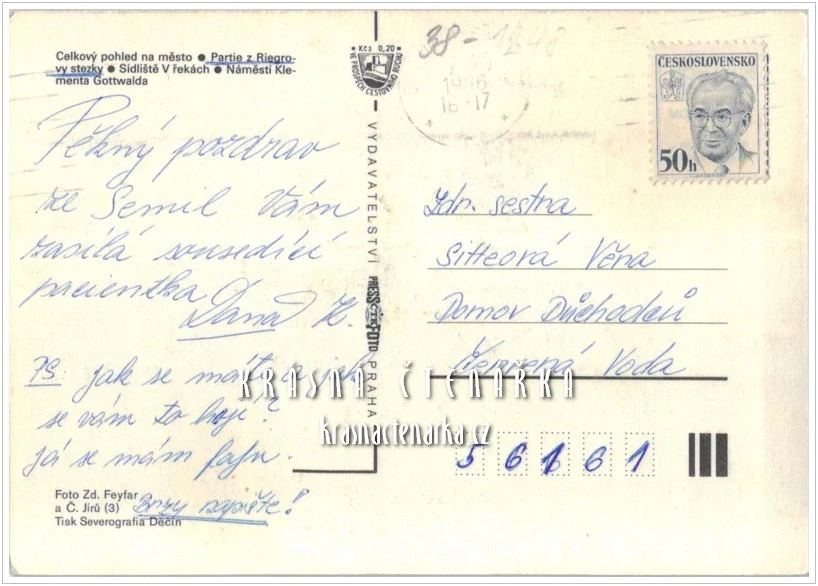 Celkový pohled na město ● Partie z Riegro-
vy stezky ● Sídliště V řekách ● Náměstí Kle-
menta Gottwalda
Kčs 0,20
VE PROSPĚCH CESTOVNÍHO RUCHU
38-1248
1986
16-17
ČESKOSLOVENSKO
50h
Pěkný pozdrav
ze Semil Vám
zasílá sousedící
pacientka
Dana K.
PS: jak se máte a jak
se vám to hojí?
Já se mám fajn.
Brzy napište!
Foto Zd. Feyfar
a Č. Jírů (3)
Tisk Severografia Děčín
VYDAVATELSTVÍ PRESSFOTO PRAHA
ČTK
Zdr. sestra
Sitteová Věna
Domov Důchodců
Červená Voda
56161
KRÁSNÁ ČTENÁŘKA
krasnactenarka.cz